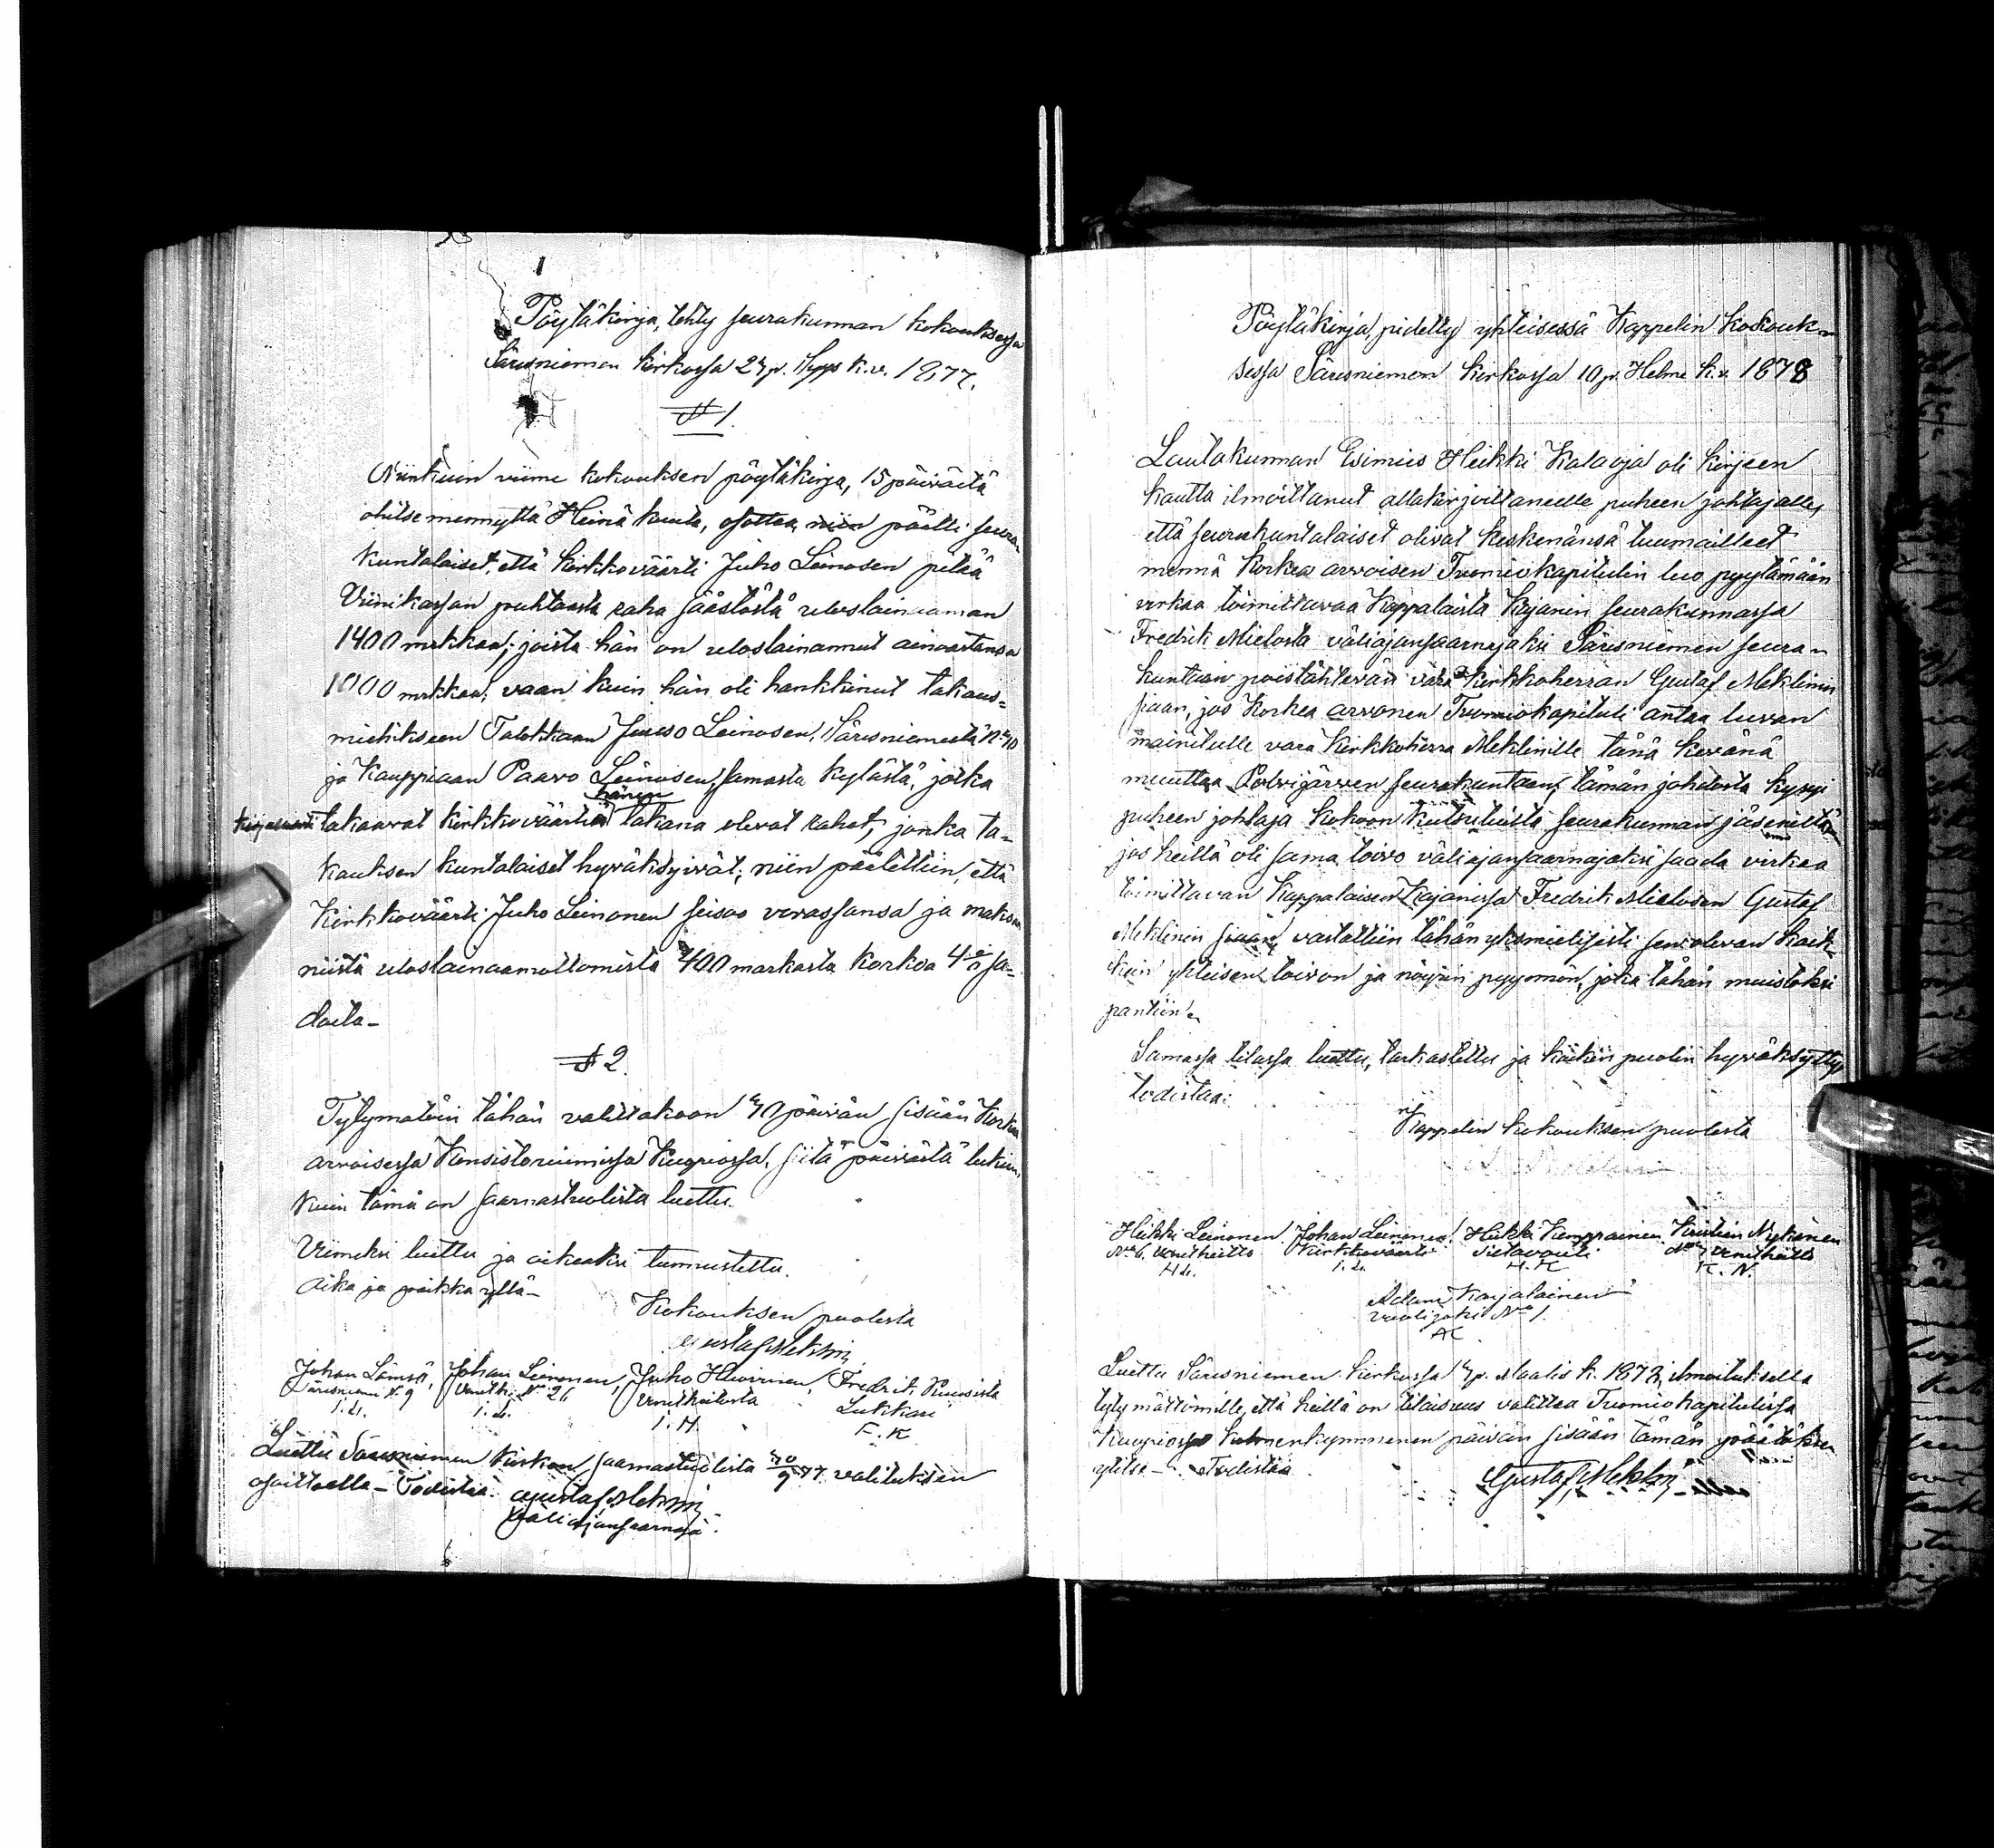 Pöytäkirja, tehty seurakunnan kokouksessa
Säresniemen kirkossa 23 p. Syys k.v. 1877.
§ 1.
Niinkuin viime kokouksen pöytäkirja, 15 päivästä
ohitse mennyttä Heinä kuuta, osottaa, niin päätti seura-
kuntalaiset, että kirkkoväärti Juho Leinosen pitää
Viinikassan puhtaasta raha säästöstä uloslainaaman
1400 markkaa; joista hän on uloslainannut ainoastansa
1000 markkaa; vaan kuin hän oli hankkinut takaus-
miehikseen Talokkaan Juuso Leinosen, Säresniemestä No 10
ja Kauppiaan Paavo Leinosen, samasta kylästä, jotka
hänen
takaavat kirkkoväärtin takana olevat rahat, jonka ta-
kauksen kuntalaiset hyväksyivät; niin päätettiin, että
Kirkkoväärti Juho Leinonen seisoo varassansa ja maksaa
niistä uloslainaamattomista 400 markasta korkoa 4 sa-
dalta-
§ 2.
Tytymätöin tähän valittakoon 30 päivän sisään Korkea
arvoisessa Konsistoriumissa Kuopiossa, siitä päivästä lukien,
kuin tämä on saarnastuolista luettu.
Viimeksi luettu ja oikeaksi tunnustettu.
Aika ja paikka yllä-
Kokouksen puolesta
Gustaf Meklin
Johan Lämsä, Johan Leinonen, Juho Huovinen, Fredrik
Säresniemi N. 9 Venetk. No 26 Venetheitosta Lukkari
J. L. J. L. J. H. F. K.
Luettu Säresniemen kirkon saarnastuolista 30/9 77. valituksen
osoittoella - Todistaa. Gustaf Meklin
Väliajansaarnaja.
Pöytäkirja, pidetty yhteisessä Kappelin Kokouk-
sessa Säresniemen kirkossa 10 p. Helmi k.v. 1878
Lautakunnan Esimies Heikki Kalaoja oli kirjeen
kautta ilmoittanut allakirjoittaneelle puheen johtajalle,
että seurakuntalaiset olivat keskenänsä tuumailleet
mennä Korkea arvoisen Tuomiokapitulin luo pyytämään
virkaa toimittavaa Kappalaista Kajanin seurakunnassa
Fredrik Mielosta väliajansaarnajaksi Säresniemen seura-
kuntaan poislähtevän vara Kirkkoherran Gustaf Meklinin
siaan, jos Korkea arvonen Tuomiokapituli antaa luvan
mainitulle vara Kirkkoherra Meklinille tänä kevänä
muuttaa Polvijärven seurakuntaan, tämän johdosta kysyi
puheen johtaja kokoon kutsutuista seurakunnan jäseniltä
jos heillä oli sama toivo väliajansaarnajaksi saada virkaa
toimittavan Kappalaisen Kajanissa Fredrik Mielosen Gustaf
Meklinin siaan, vastattiin tähän yksmielisesti sen olevan kaik-
kein yhteisen toivon ja nöyrin pyynnön, joka tähän muistoksi
pantiin.
Samassa tilassa luettu, tarkastettu ja kaikin puolin hyväksytty,
todistaa:
Kappelin kokouksen puolesta
Heikki Leinonen Johan Leinonen Heikki Kemppainen Kristian Nykänen
No 6. Venetheitto Kirkkoväärti Siltavouti No 7 Venetheitto
H. L. J. L. H. K. K. N.
Adam Karjalainen
Vuolijoki No 1.
A K
Luettu Säresniemen kirkossa 3 p. Maalis k. 1878, ilmoituksella
tytymättömille, että heillä on tilaisuus valittaa Tuomiokapitulissa
Kuopiossa kolmenkymmenen päivän sisään tämän päätöksen
ylitse - Todistaa
Gustaf Meklin